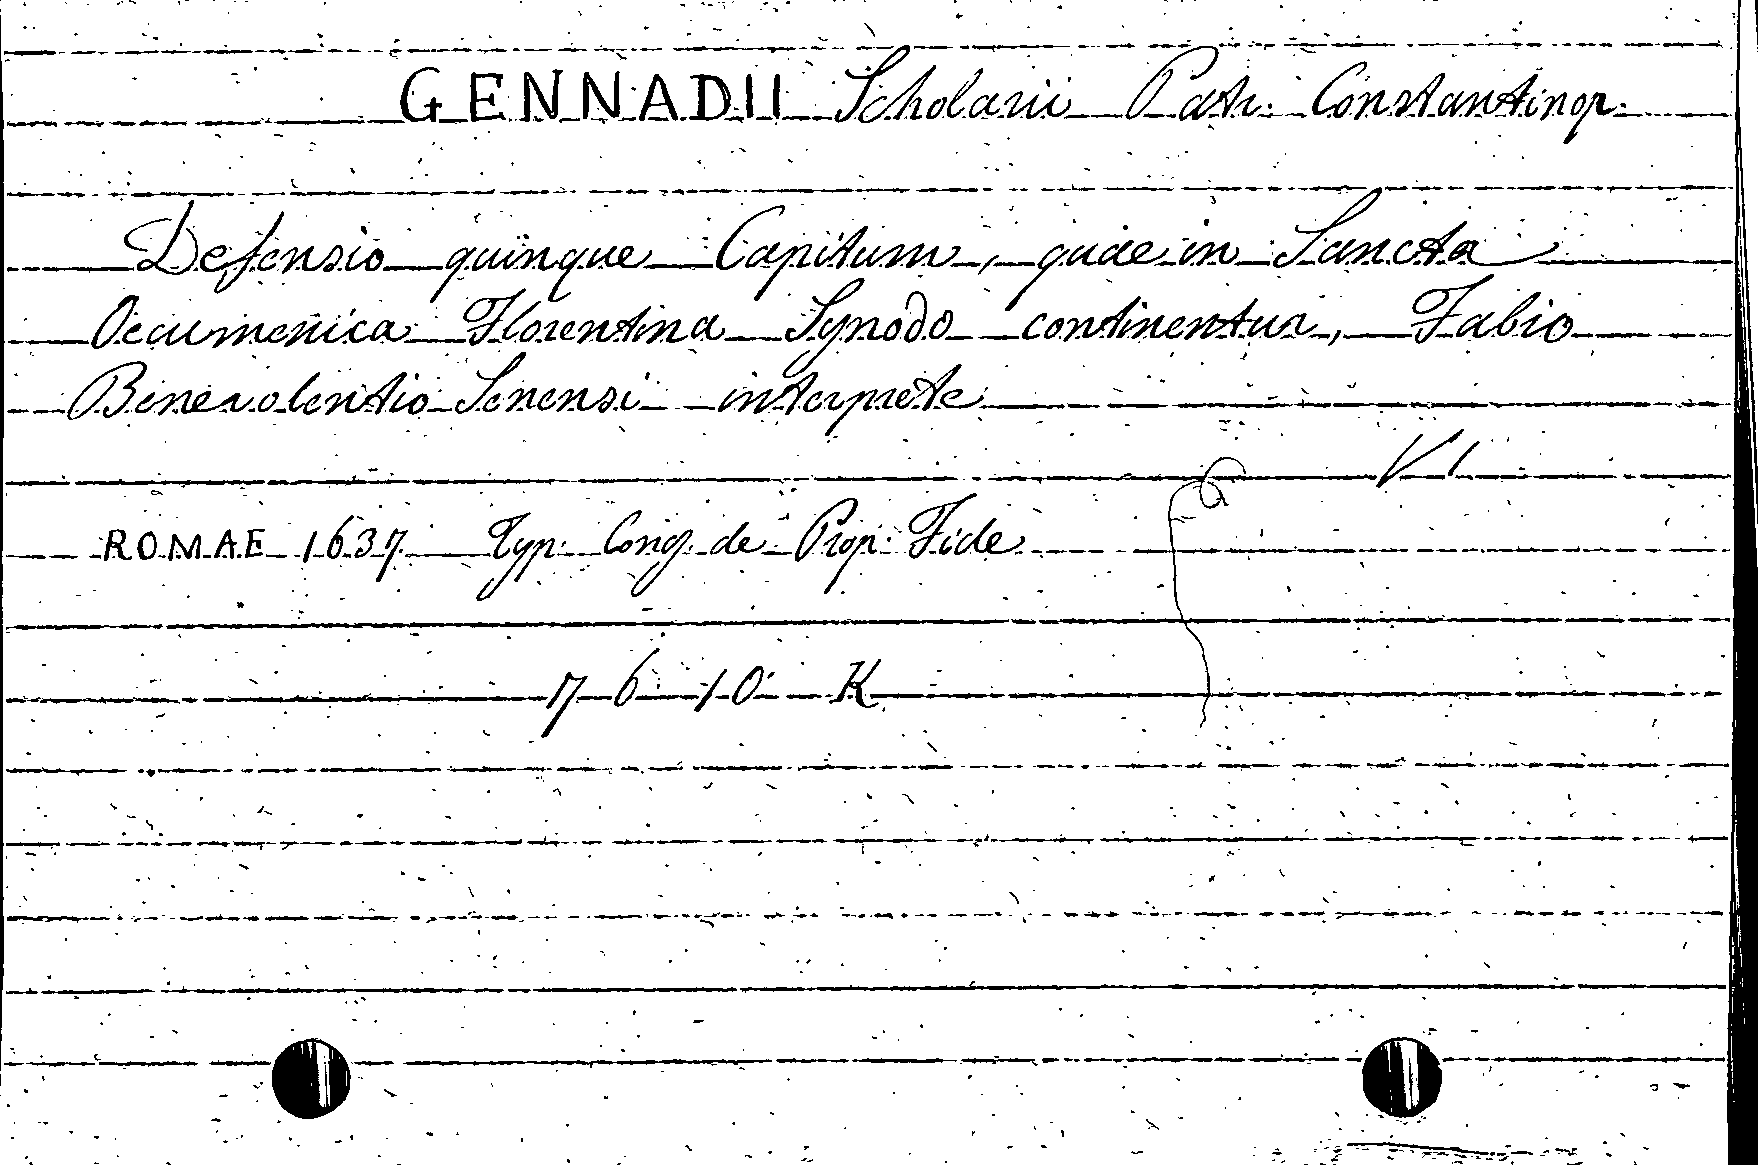 GENNADII Scholarii Patr. Constantinop.
Defensio quinque Capitum, quae in Sancta
Oecumenica Florentina Synodo continentur, Fabio
Benevolentio Senensi interprete
VI
ROMAE 1637 Typ. Cong. de Prop. Fide
7 6 10 K